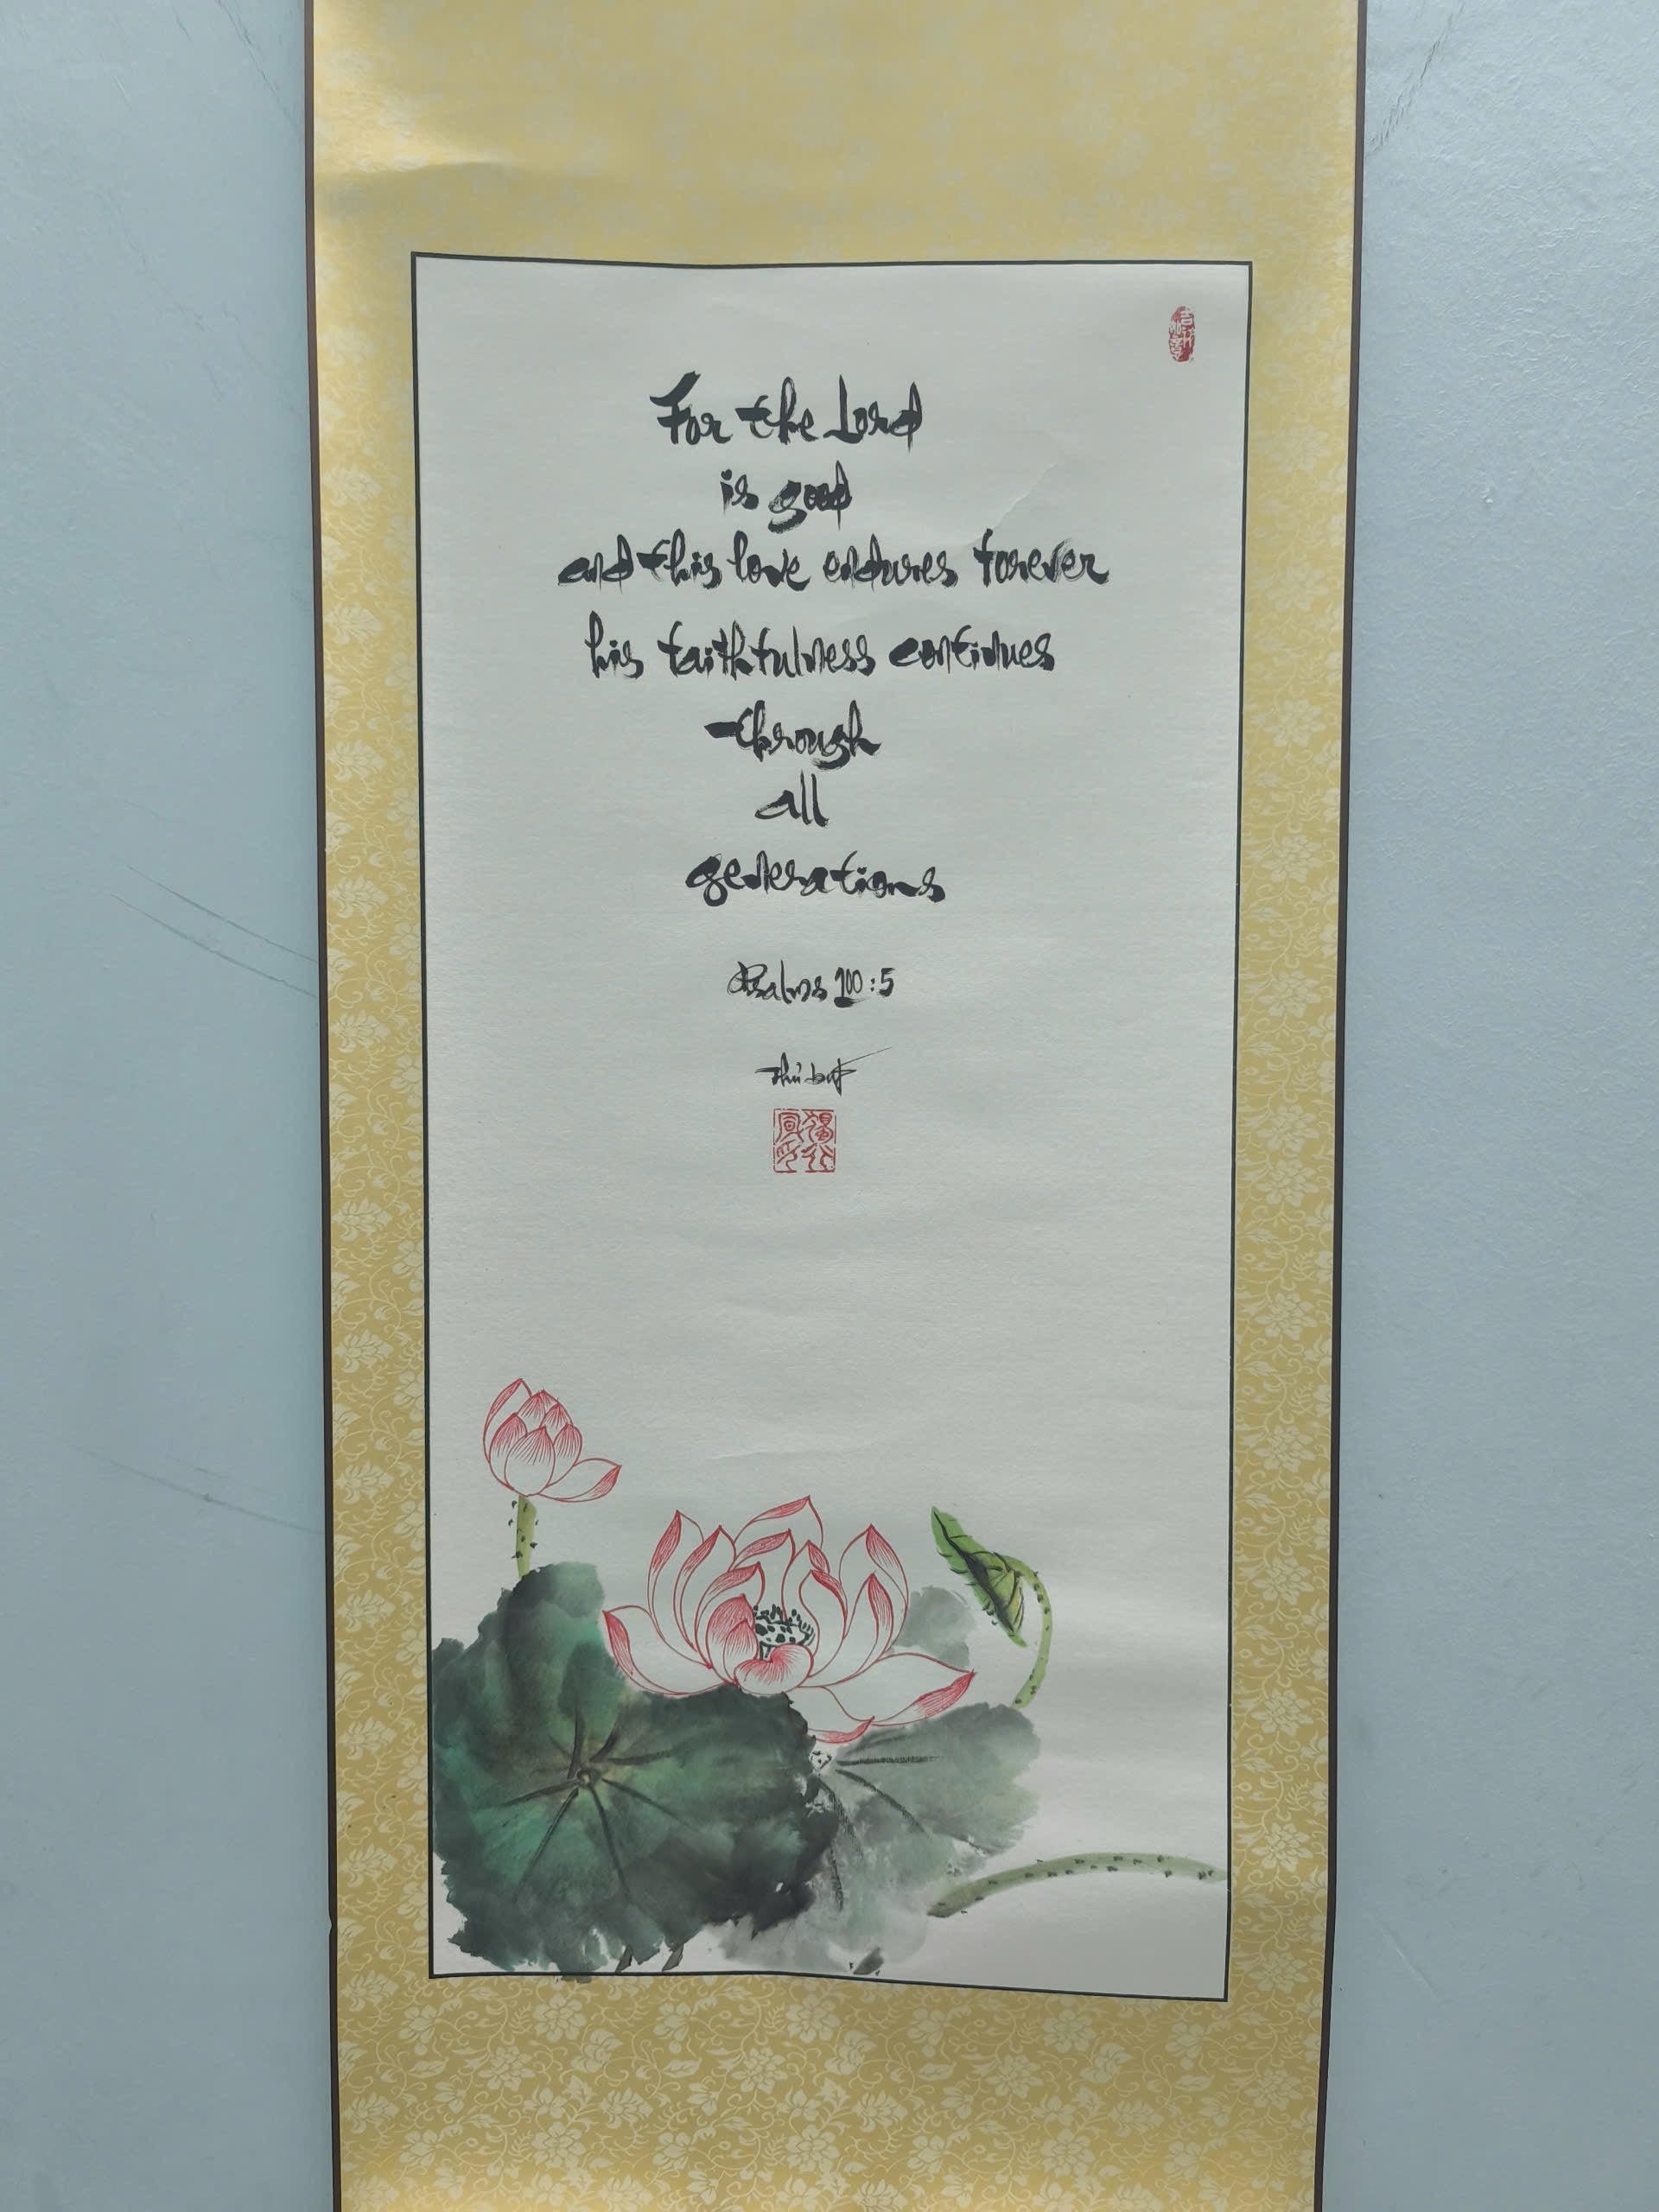 For the Lord
is good
and this love endures forever
his faithfulness continues
through
all
generations
Psalms 100:5
吉祥如意